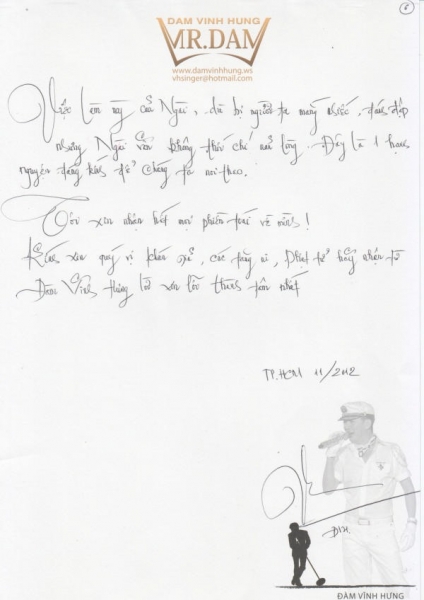 6
DAM VINH HUNG
MR.DAM
www.damvinhhung.ws
vhsinger@hotmail.com
Việc làm này của Ngài, dù bị người ta mắng nhiếc, đánh đập
nhưng Ngài vẫn không thối chí nản lòng. Đấy là 1 hạnh
nguyện đáng kính để chúng ta noi theo.
Tôi xin nhận hết mọi phần trái về mình!
Kính xin quý vị khán giả, các tăng ni, Phật tử hãy nhận từ
Đàm Vĩnh Hưng lời xin lỗi thành tâm nhất
TP.HCM 11/2012
ĐVH.
ĐÀM VĨNH HƯNG